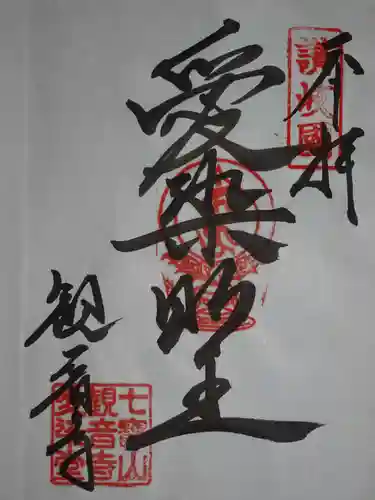 奉拝
讃岐國
愛染明王
観音寺
七寶山
観音寺